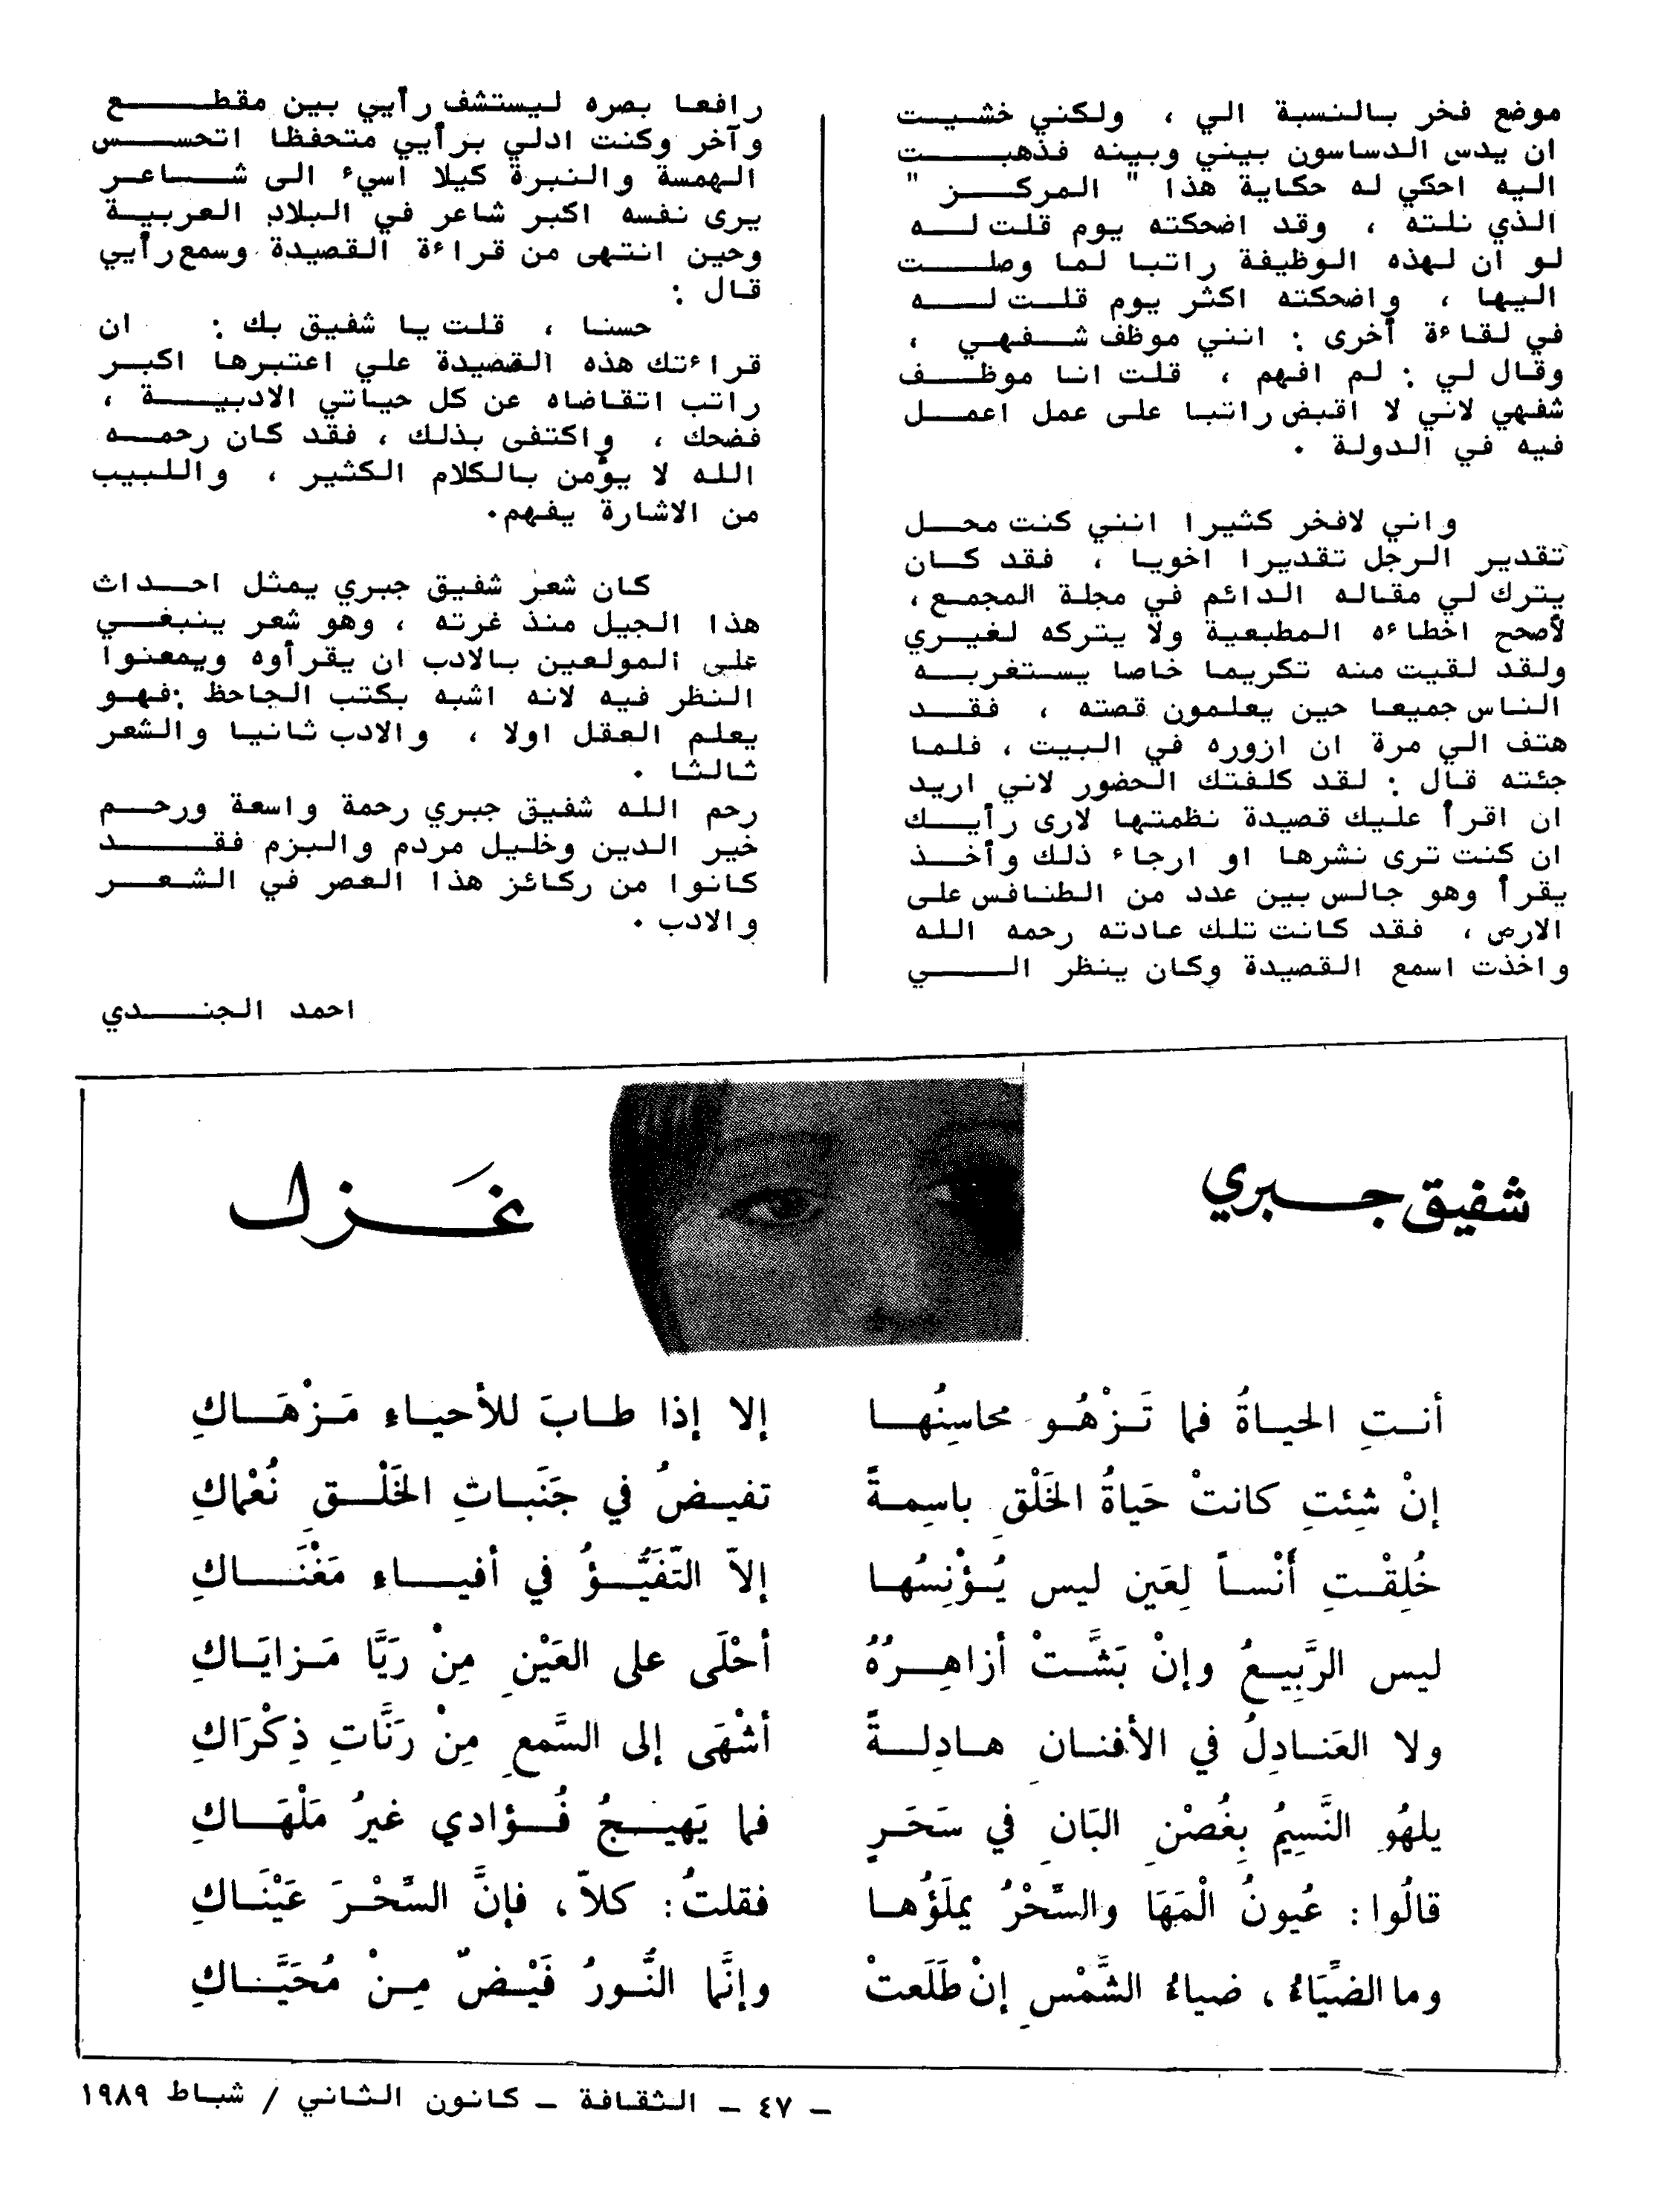 موضع فخر بالنسبة الي ، ولكني خشيت
ان يدس الدساسون بيني وبينه فذهبت
اليه احكي له حكاية هذا " المركز "
الذي نلته ، وقد اضحكته يوم قلت له
لو ان لهذه الوظيفة راتبا لما وصلت
اليها ، واضحكته اكثر يوم قلت له
في لقاءة أخرى : انني موظف شفهي ،
وقال لي : لم افهم ، قلت انا موظف
شفهي لاني لا اقبض راتبا على عمل اعمل
فيه في الدولة .
واني لافخر كثيرا انني كنت محل
تقدير الرجل تقديرا اخويا ، فقد كان
يترك لي مقاله الدائم في مجلة المجمع ،
لأصحح اخطاءه المطبعية ولا يتركه لغيري
ولقد لقيت منه تكريما خاصا يستغربه
الناس جميعا حين يعلمون قصته ، فقد
هتف الي مرة ان ازوره في البيت ، فلما
جئته قال : لقد كلفتك الحضور لاني اريد
ان اقرأ عليك قصيدة نظمتها لارى رأيك
ان كنت ترى نشرها او ارجاء ذلك وأخذ
يقرأ وهو جالس بين عدد من الطنافس على
الارض ، فقد كانت تلك عادته رحمه الله
واخذت اسمع القصيدة وكان ينظر الي
رافعا بصره ليستشف رأيي بين مقطع
وآخر وكنت ادلي برأيي متحفظا اتحسس
الهمسة والنبرة كيلا اسيء الى شاعر
يرى نفسه اكبر شاعر في البلاد العربية
وحين انتهى من قراءة القصيدة وسمع رأيي
قال :
حسنا ، قلت يا شفيق بك : ان
قراءتك هذه القصيدة علي اعتبرها اكبر
راتب اتقاضاه عن كل حياتي الادبية ،
فضحك ، واكتفى بذلك ، فقد كان رحمه
الله لا يؤمن بالكلام الكثير ، واللبيب
من الاشارة يفهم.
كان شعر شفيق جبري يمثل احداث
هذا الجيل منذ غرته ، وهو شعر ينبغي
على المولعين بالادب ان يقرأوه ويمعنوا
النظر فيه لانه اشبه بكتب الجاحظ :فهو
يعلم العقل اولا ، والادب ثانيا والشعر
ثالثا .
رحم الله شفيق جبري رحمة واسعة ورحم
خير الدين وخليل مردم والبزم فقد
كانوا من ركائز هذا العصر في الشعر
والادب .
احمد الجندي
شفيق جبري
غَزل
أنتِ الحياةُ فما تَزْهُو محاسِنُها إلا إذا طابَ للأحياء مَزْهَاكِ
إنْ شِئتِ كانتْ حَياةُ الخَلْقِ باسِمةً تفيضُ في جَنَباتِ الخَلْق نُعْماكِ
خُلِقْتِ أُنْساً لِعَين ليس يُؤْنِسُها إلاّ التّفَيُّؤُ في أفياء مَغْنَاكِ
ليس الرَّبِيعُ وإنْ بَشَّتْ أزاهِرُهُ أحْلَى على العَيْنِ مِنْ رَيَّا مَزايَاكِ
ولا العَنادِلُ في الأفنانِ هادِلةً أشْهَى إلى السَّمعِ مِنْ رَنَّاتِ ذِكْرَاكِ
يلهُو النَّسِيمُ بِغُصْنِ البَانِ في سَحَرٍ فما يَهيجُ فُؤادي غيرُ مَلْهَاكِ
قالُوا : عُيونُ الْمَهَا والسِّحْرُ يملَؤُها فقلتُ : كلاّ ، فإنَّ السِّحْرَ عَيْنَاكِ
وما الضِّيَاءُ ، ضياءُ الشَّمْسِ إنْ طَلَعتْ وإنَّما النُّورُ فَيْضٌ مِنْ مُحَيَّاكِ
– ٤٧ – الثقافة – كانون الثاني / شباط ١٩٨٩